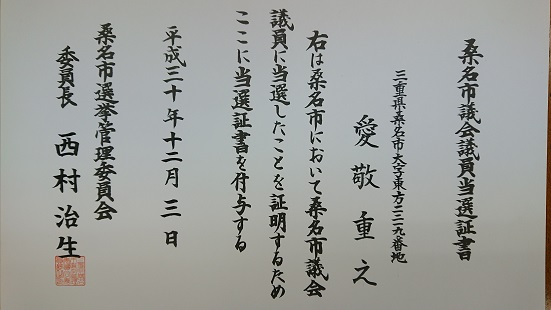 桑名市議会議員当選証書
三重県桑名市大字東方二三一九番地
愛敬重之
右は桑名市において桑名市議会
議員に当選したことを証明するため
ここに当選証書を付与する
平成三十年十二月三日
桑名市選挙管理委員会
委員長 西村治生